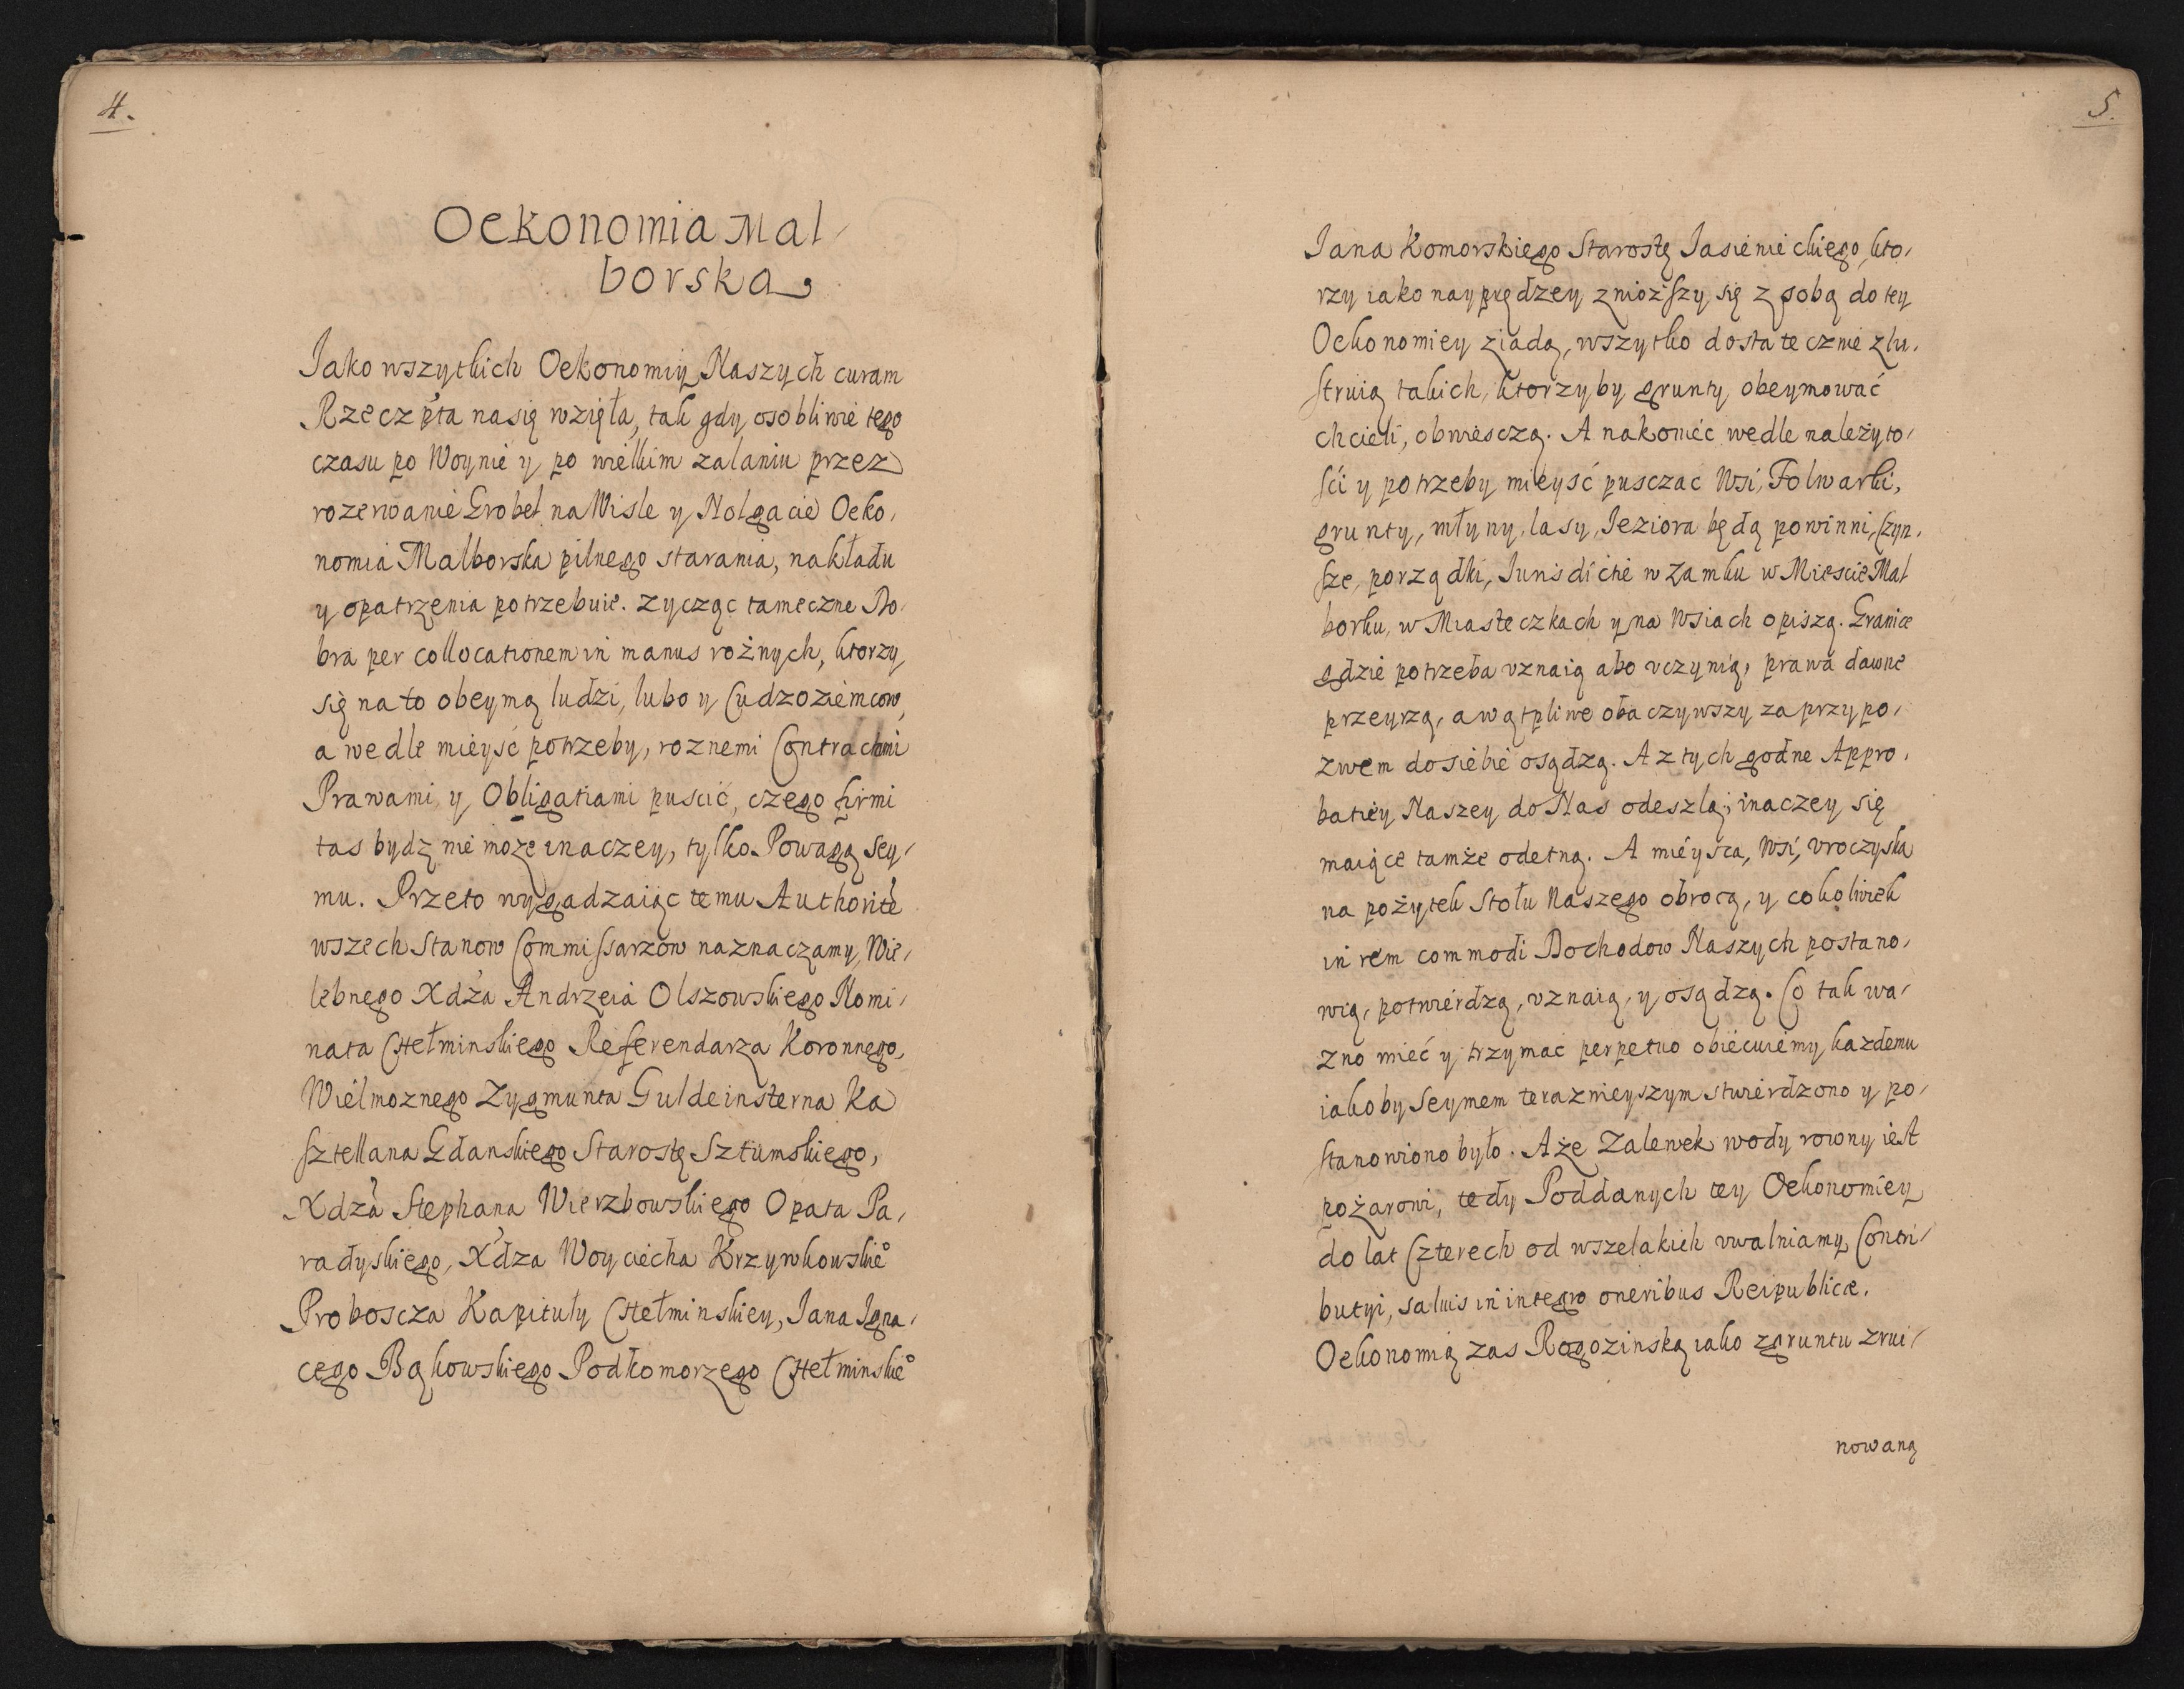 4.
Oekonomia Mal/
borska
Jako wszytkich Oekonomiy Naszych curam
Rzeczpta na się wzięła, tak gdy osobliwie tego
czasu po Woynie y po wielkim zalaniu przez
rozerwanie Grobel na Wisle y Nolgacie Oeko/
nomia Malborska pilnego starania, nakładu
y opatrzenia potrzebuie. Zycząc tameczne Do/
bra per collocationem in manus rożnych, ktorzy
się na to obeymą ludzi, lubo y Cudzoziemcow,
a wedle mieysć potrzeby, roznemi Contractami
Prawami, y Obligatiami puscić, czego firmi
tas bydz nie może inaczey, tylko Powagą Sey/
mu. Przeto wygadzaiąc temu Authorite
wszech Stanow Commissarzow naznaczamy Wie/
lebnego Xdza Andrzeia Olszowskiego Nomi/
nata Chełminskiego Referendarza Koronnego,
Wielmoznego Zygmunta Guldeinsterna Ka
sztellana Gdanskiego Starostę Sztumskiego,
Xdza Stephana Wierzbowskiego Opata Pa/
radyskiego, Xdza Woyciecha Krzywkowskie°
Proboscza Kapituły Chełminskiey, Jana Igna/
cego Bąkowskiego Podkomorzego Chełminskie°
5.
Jana Komorskiego Starostę Jasienieckiego, kto/
rzy iako nayprędzey zniozszy się z sobą do tey
Oekonomiey ziadą, wszytko dostatecznie zlu/
struią takich, ktorzyby grunty obeymować
chcieli, obwiesczą. A nakoniéc wedle należyto/
ści y potrzeby mieysć pusczac Wsi, Folwarki,
grunty, młyny, lasy, Jeziora będą powinni, Czyn/
sze, porządki, Jurisdictie w Zamku w Miescie Mal
borku, w Miasteczkach y na Wsiach opiszą. Granice
gdzie potrzeba uznaią abo uczynią, prawa dawne
przeyrzą, a wątpliwe obaczywszy za przypo/
zwem do siebie osądzą. A z tych godne Appro/
batiey Naszey do Nas odeszlą, inaczey się
maiące tamże odetną. A mieysca, Wsi, uroczyska
na pożytek Stołu Naszego obrocą, y cokolwiek
in rem commodi Dochodow Naszych postano/
wią, potwierdzą, uznaią, y osądzą. Co tak wa/
zno mieć y trzymać perpetuo obiecuiemy każdemu
iakoby Seymem teraznieyszym stwierdzono y po/
stanowiono było. A że Zalewek wody rowny iest
pożarowi, tedy Poddanych tey Oekonomiey
do lat Czterech od wszelakich uwalniamy Contri/
butyi, salvis in integro oneribus Reipublicæ.
Oekonomią zas Rogozinską iako z gruntu zrui/
nowaną